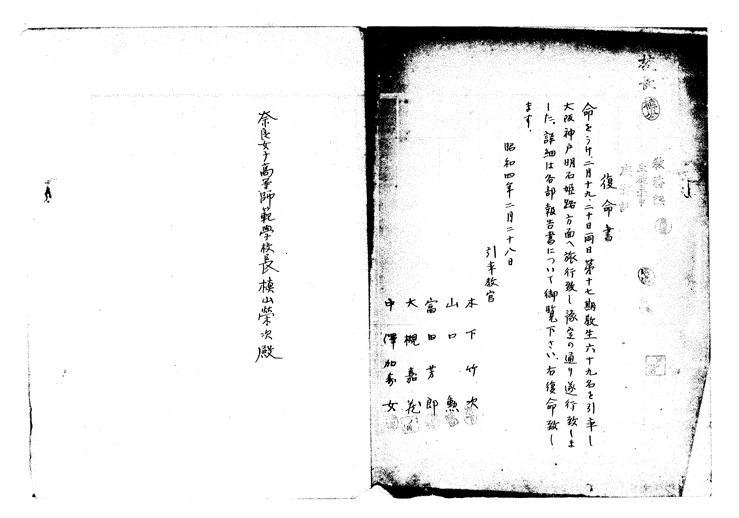 校長
教務課
復命書
命をうけ、二月十九、二十日両日第十七期教生六十九名を引率し
大阪神戸明石姫路方面へ旅行致し豫定の通り遂行致しま
した、詳細は各部報告書について御覧下さい、右復命致し
ます。
昭和四年二月二十八日
引率教官
木下竹次
山口勲
富田芳郎
大槻嘉
中澤加寿女
奈良女子高等師範學校長槇山榮次殿